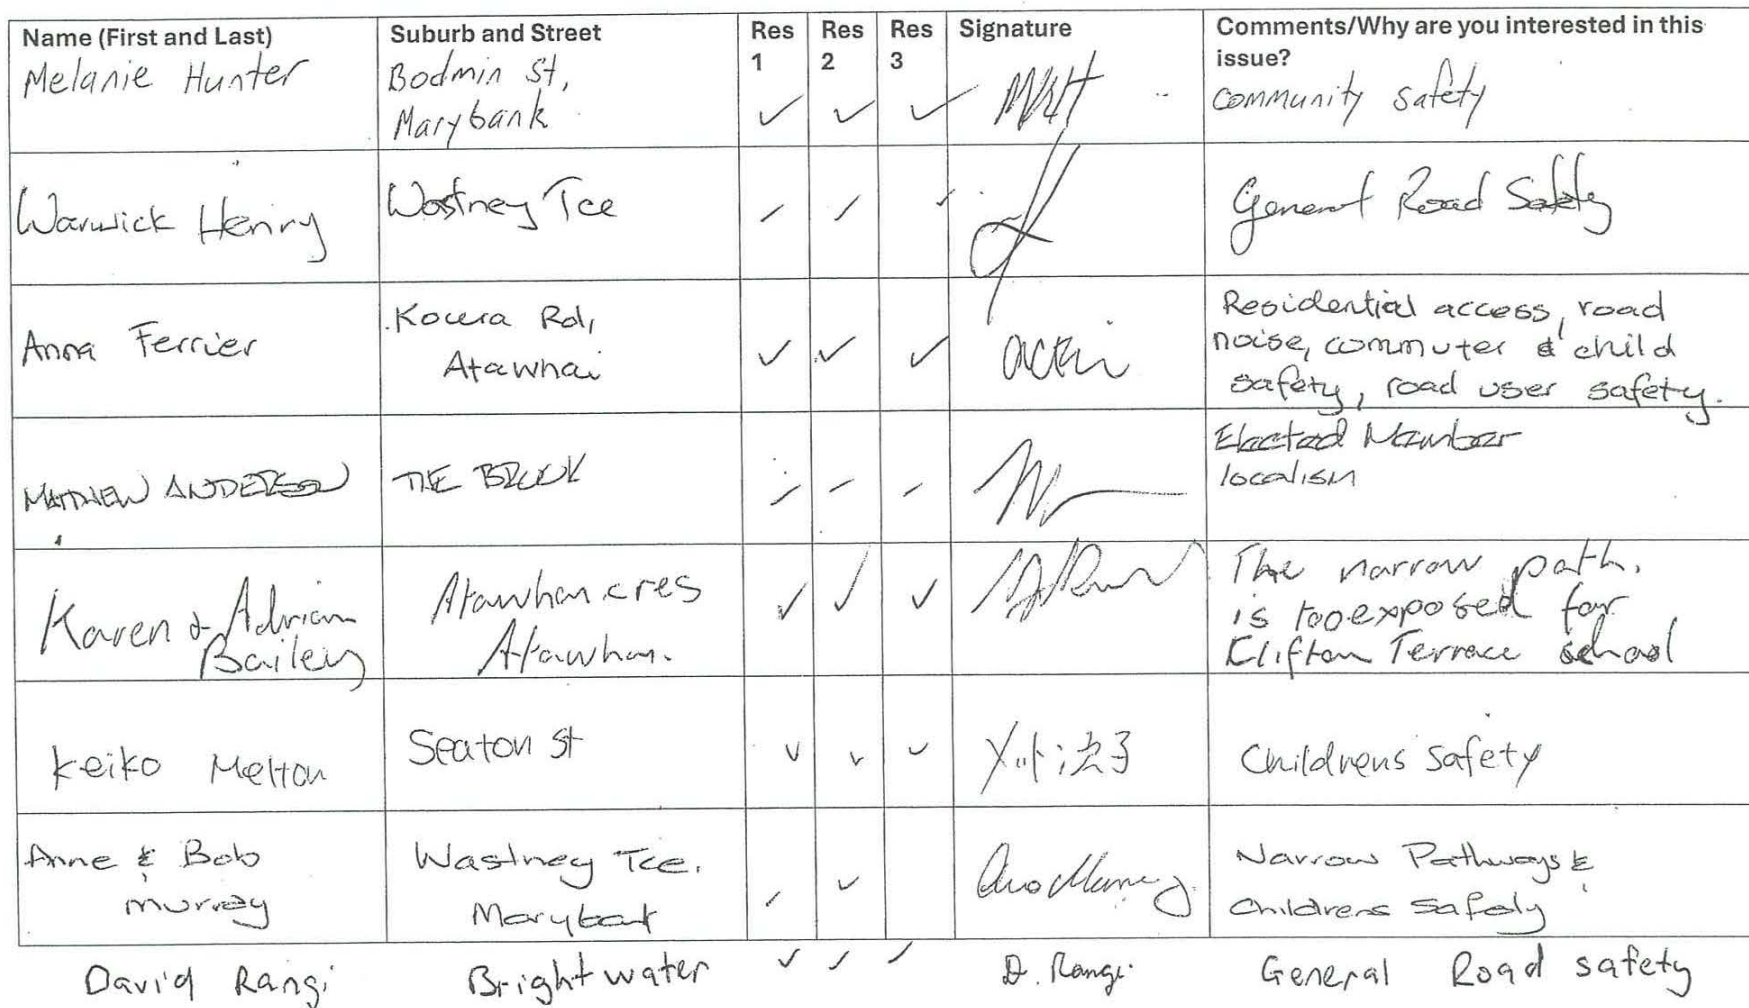 Name (First and Last) Suburb and Street Res 1 Res 2 Res 3 Signature Comments/Why are you interested in this issue?
Melanie Hunter Bodmin St, Marybank ✓ ✓ ✓ community safety
Warwick Henry Wastney Tce ✓ ✓ ✓ General Road Safety
Anna Ferrier Kowra Rd, Atawhai ✓ ✓ ✓ Residential access, road noise, commuter & child safety, road user safety.
MATTHEW ANDERSON THE BROOK ✓ ✓ ✓ Elected Member localism
Karen & Adrian Bailey Atawhai cres Atawhai. ✓ ✓ ✓ The narrow path, is too exposed for Clifton Terrace school
Keiko Melton Seaton St ✓ ✓ ✓ Childrens Safety
Anne & Bob Murray Wastney Tce. Marybank ✓ ✓ Narrow Pathways & Childrens Safety
David Rangi Brightwater ✓ ✓ ✓ D. Rangi General Road safety